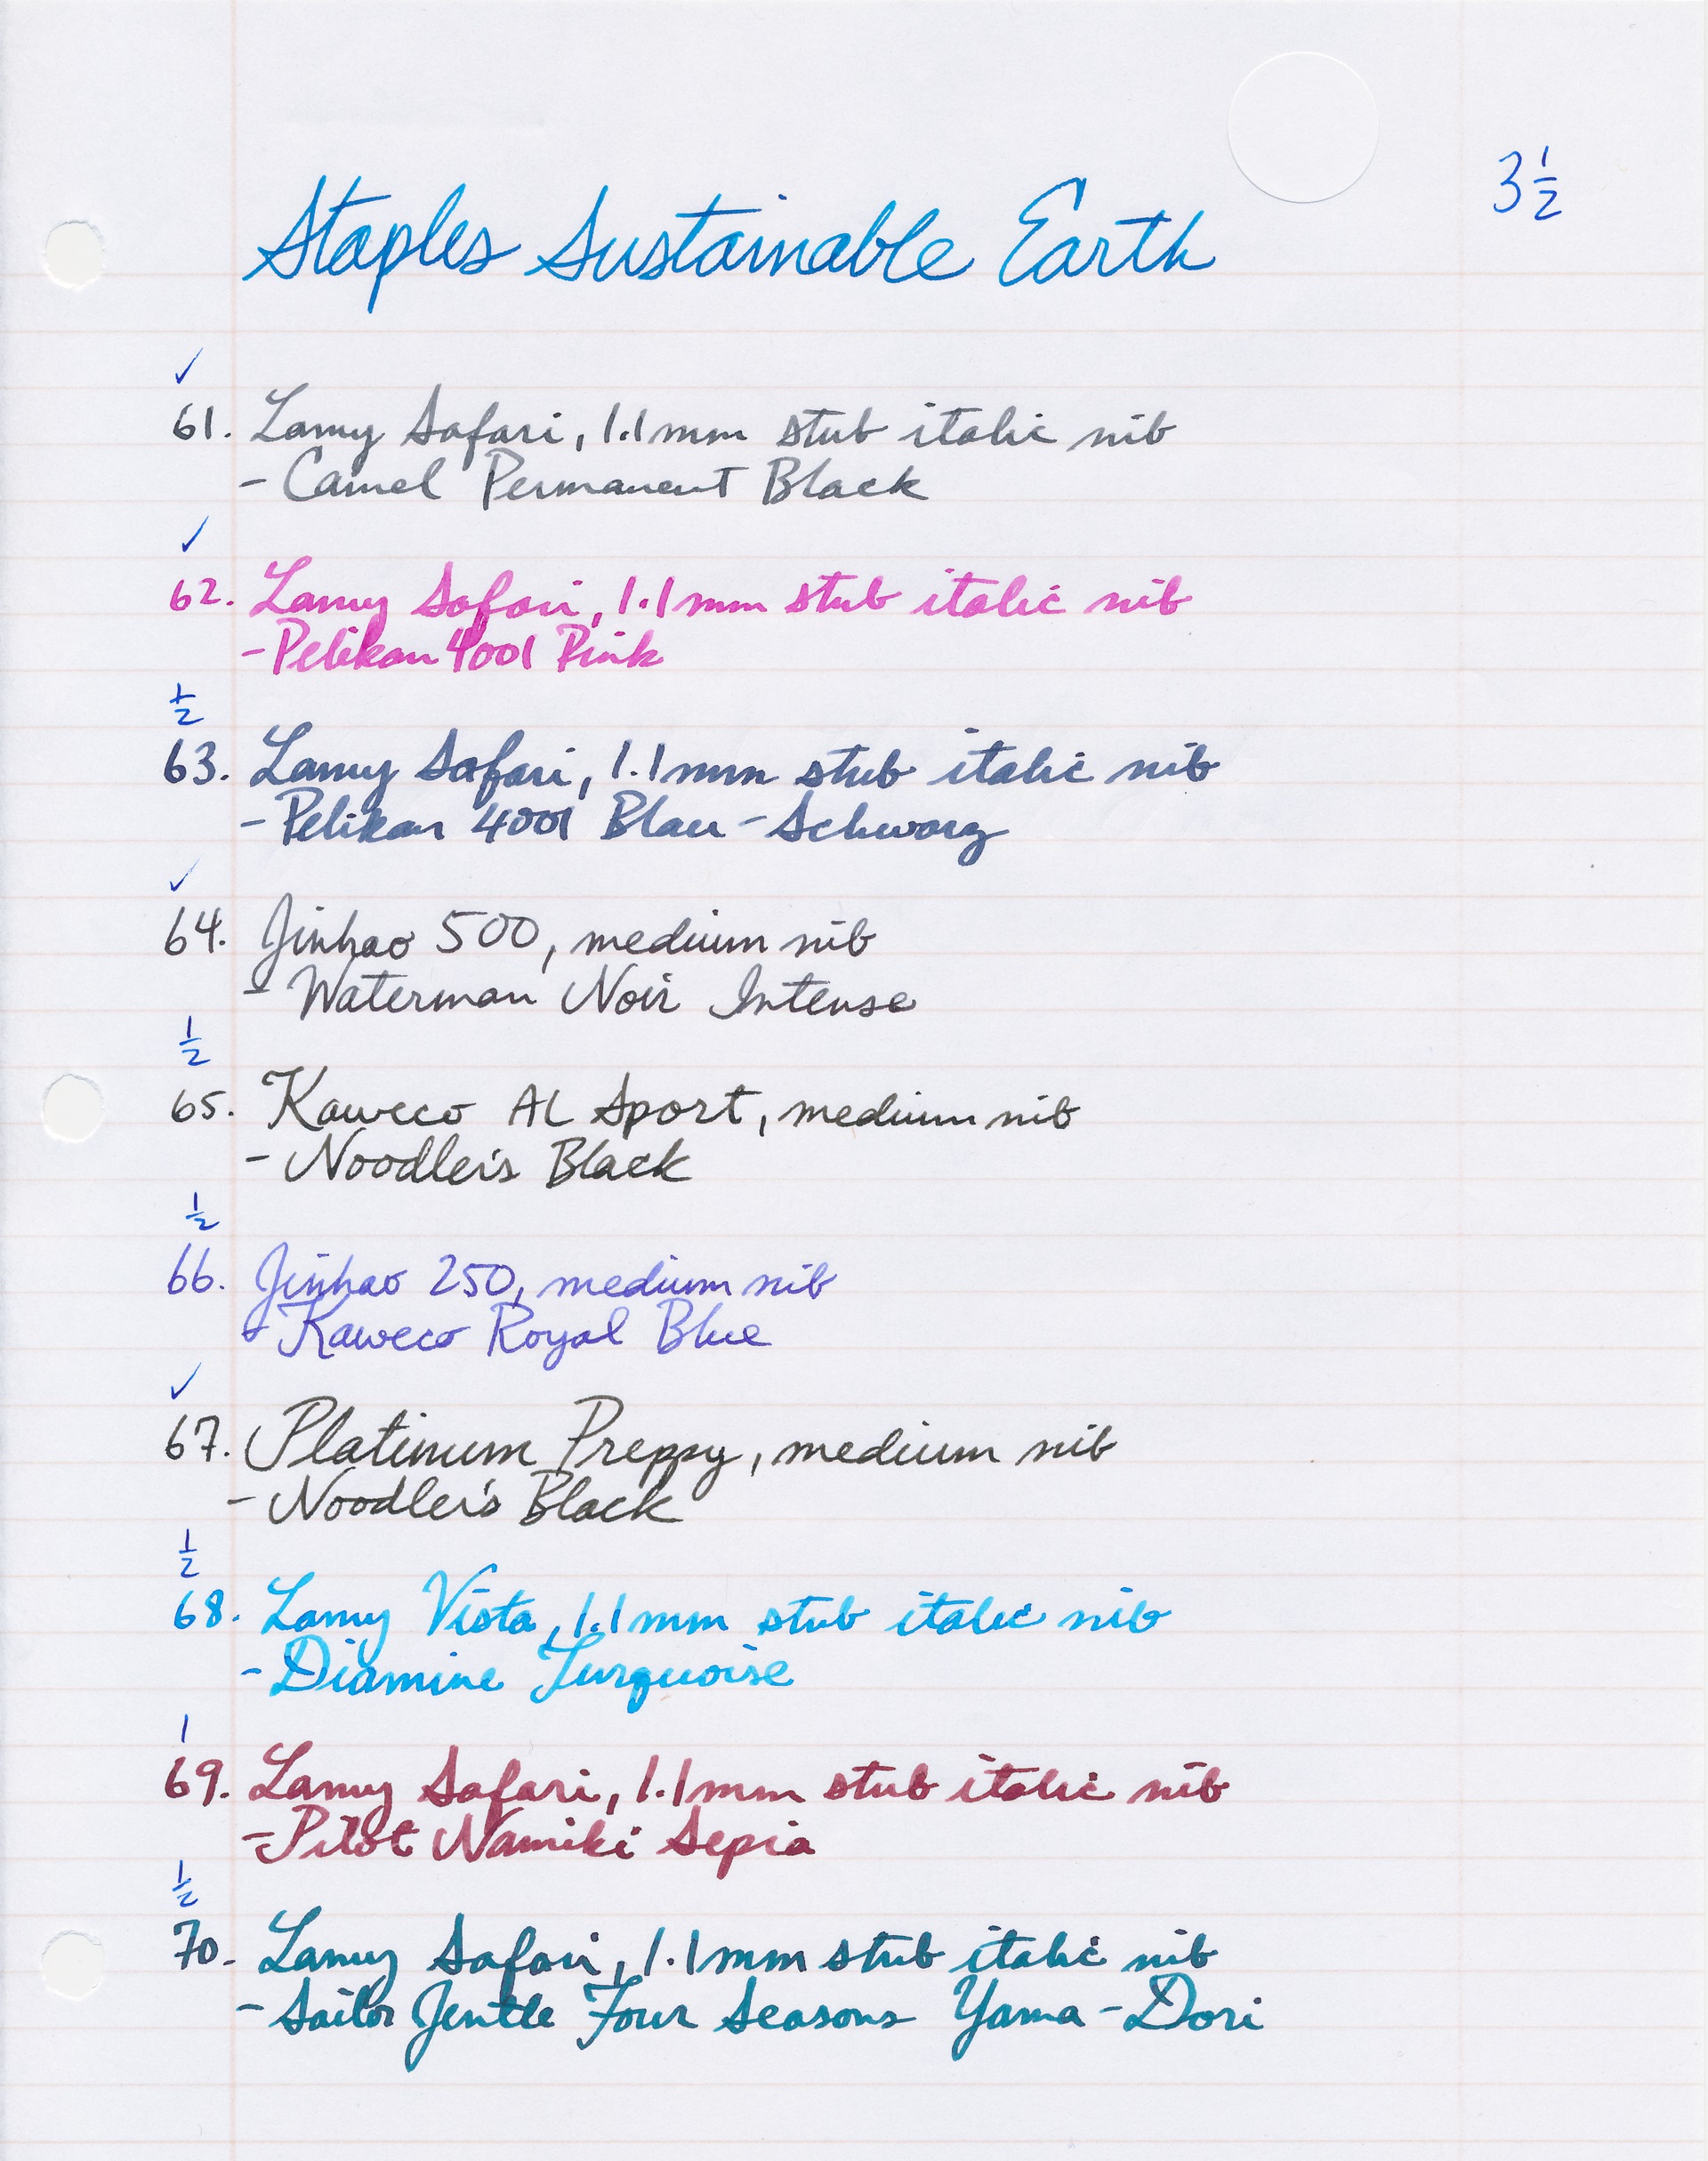 3 1/2
Staples Sustainable Earth
✓
61. Lamy Safari, 1.1mm stub italic nib
- Camel Permanent Black
✓
62. Lamy Safari, 1.1mm stub italic nib
- Pelikan 4001 Pink
1/2
63. Lamy Safari, 1.1mm stub italic nib
- Pelikan 4001 Blau-Schwarz
✓
64. Jinhao 500, medium nib
- Waterman Noir Intense
1/2
65. Kaweco AL Sport, medium nib
- Noodler's Black
1/2
66. Jinhao 250, medium nib
- Kaweco Royal Blue
✓
67. Platinum Preppy, medium nib
- Noodler's Black
1/2
68. Lamy Vista, 1.1mm stub italic nib
- Diamine Turquoise
1
69. Lamy Safari, 1.1mm stub italic nib
- Pilot Namiki Sepia
1/2
70. Lamy Safari, 1.1mm stub italic nib
- Sailor Jentle Four Seasons Yama-Dori